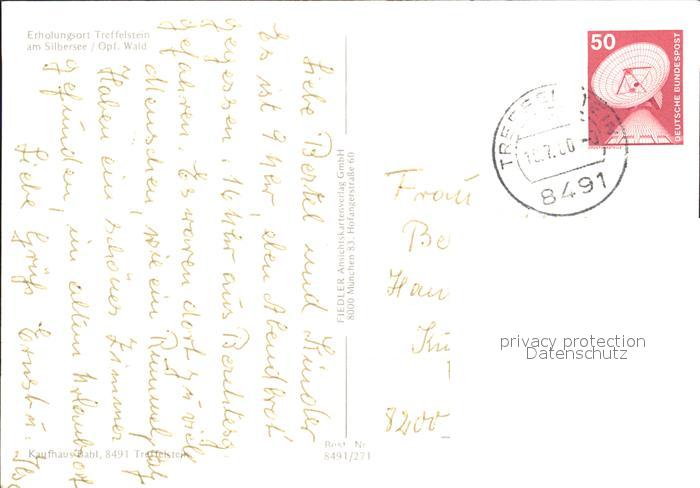 Erholungsort Treffelstein
am Silbersee / Opf. Wald
Liebe Bertel und Kinder
Es ist 9 Uhr, den Abendbrot
gegessen. 16 Uhr aus Berchtesg.
gefahren. Es waren dort zu viele
Menschen, wie ein Rummelplatz
Haben ein schönes Zimmer
gefunden, im alten Urlaubsort
Liebe Grüße Ernst u.
FIEDLER Ansichtskartenverlag GmbH
8000 München 83, Hofangerstraße 60
Best. Nr.
8491/271
Kaufhaus Babl, 8491 Treffelstein
50
DEUTSCHE BUNDESPOST
8491
Frau
Be
Han
8200
privacy protection
Datenschutz